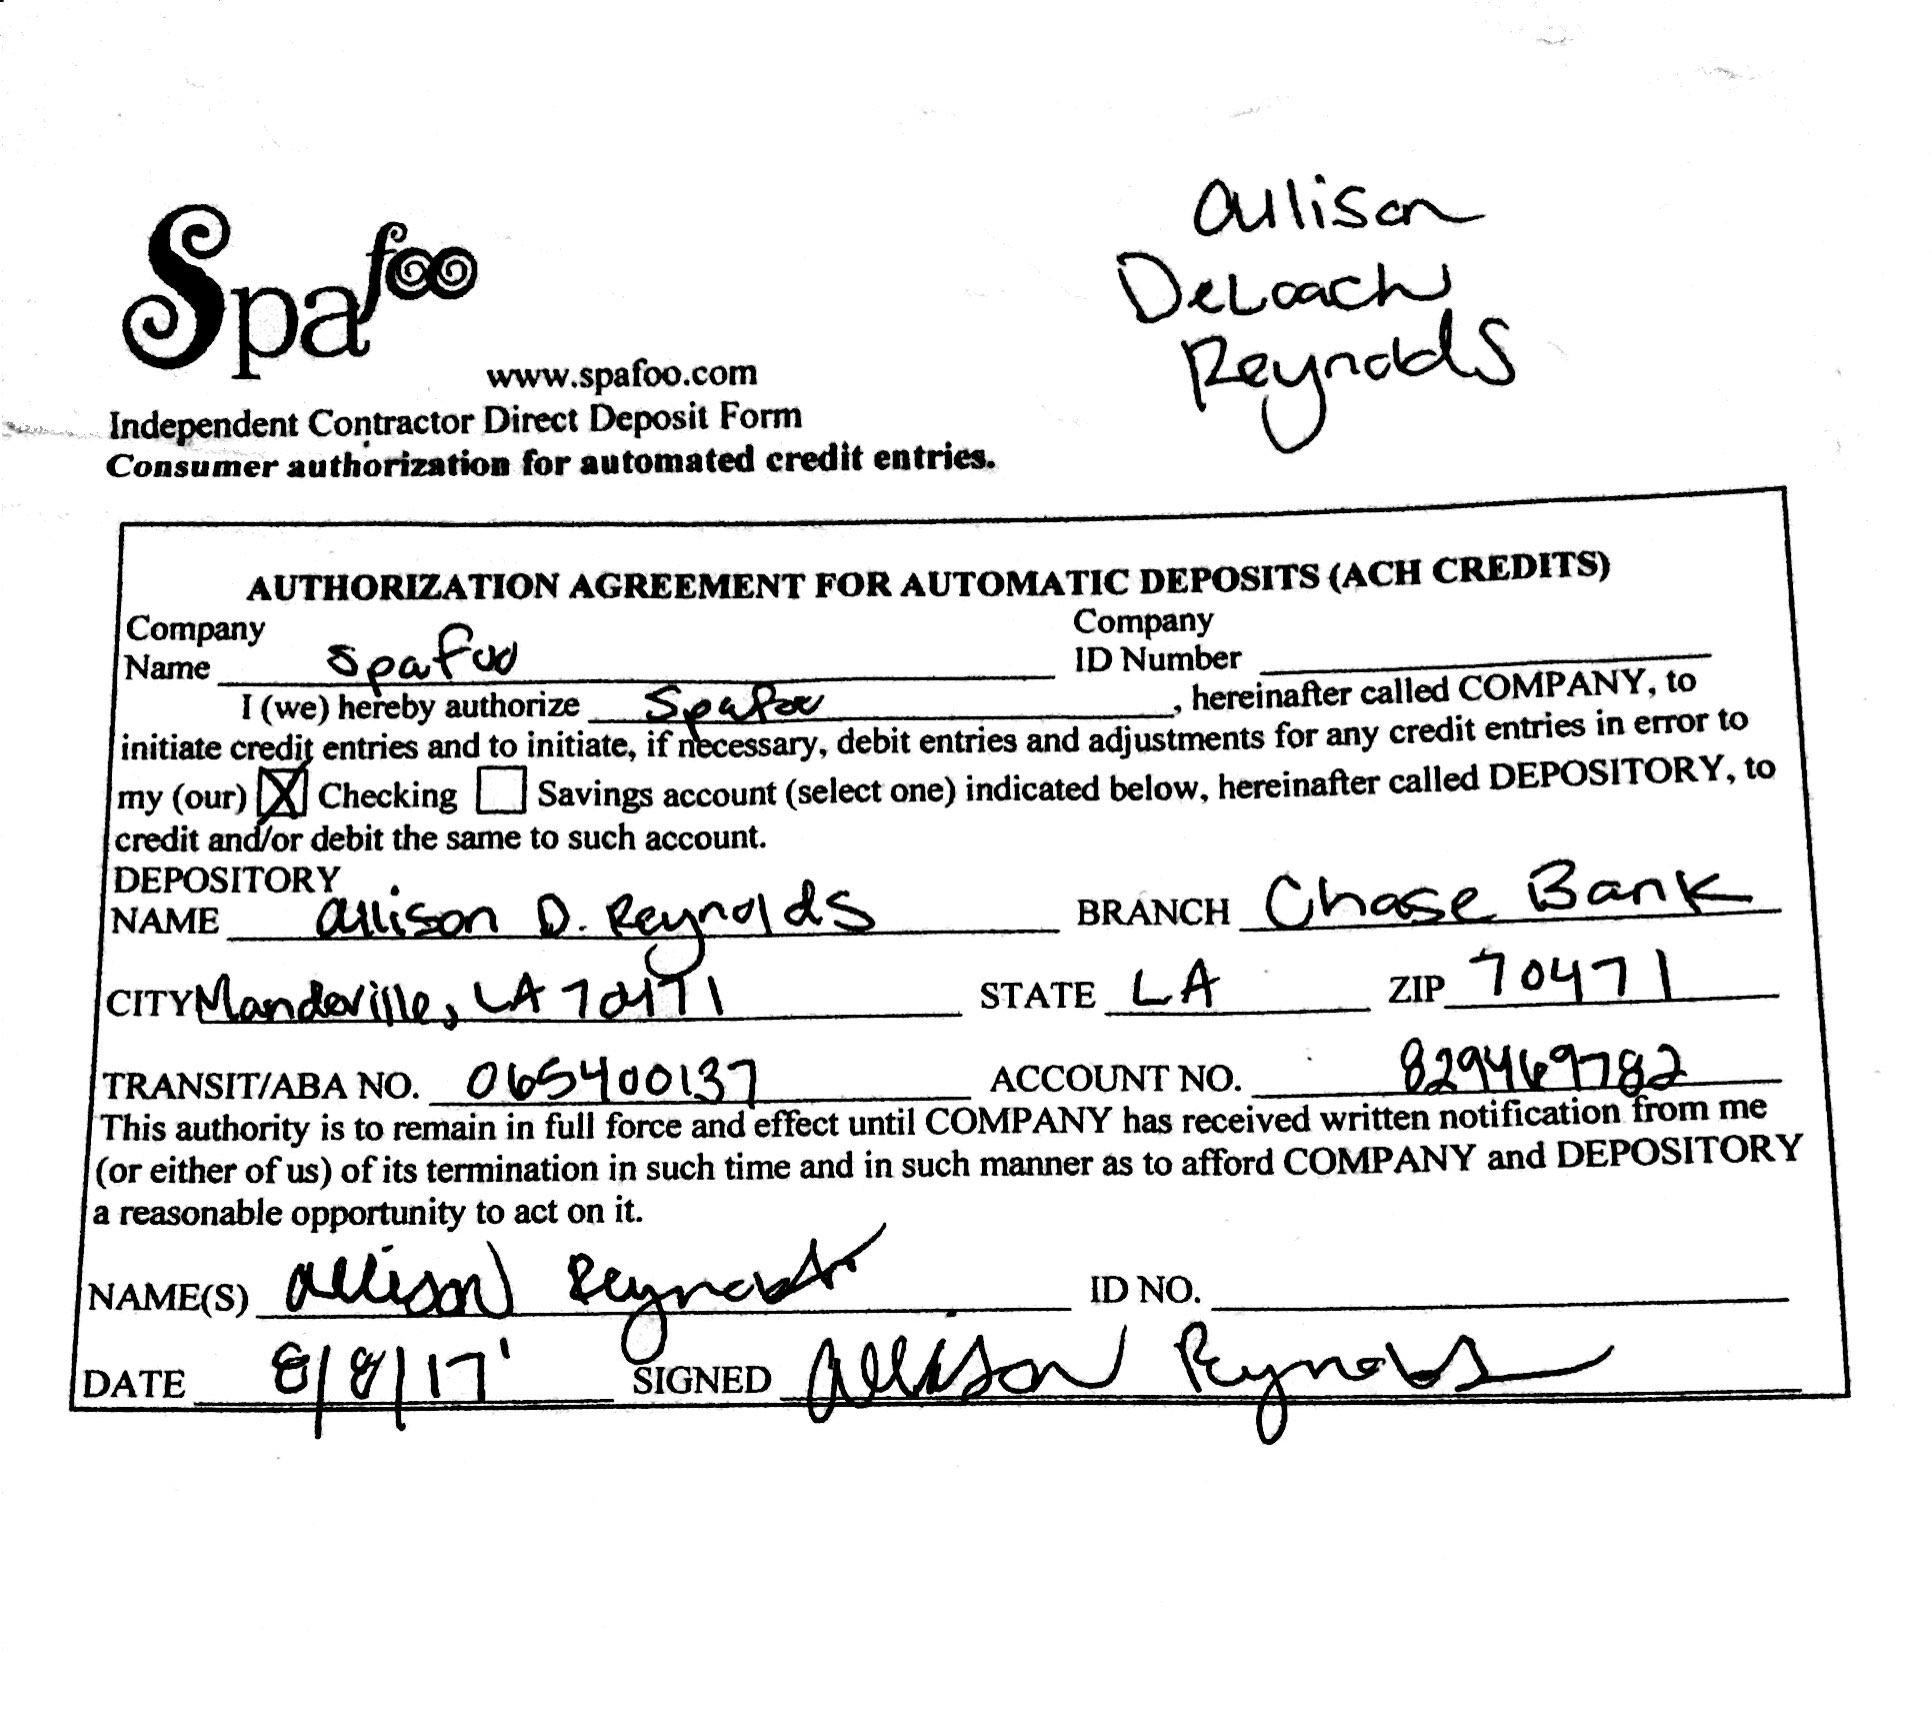 Allison
DeLoach
Reynolds
Spafoo
www.spafoo.com
Independent Contractor Direct Deposit Form
Consumer authorization for automated credit entries.
AUTHORIZATION AGREEMENT FOR AUTOMATIC DEPOSITS (ACH CREDITS)
Company Name Spafoo Company ID Number
I (we) hereby authorize Spafoo, hereinafter called COMPANY, to
initiate credit entries and to initiate, if necessary, debit entries and adjustments for any credit entries in error to
my (our) X Checking Savings account (select one) indicated below, hereinafter called DEPOSITORY, to
credit and/or debit the same to such account.
DEPOSITORY
NAME Allison D. Reynolds BRANCH Chase Bank
CITY Mandeville, LA 70471 STATE LA ZIP 70471
TRANSIT/ABA NO. 065400137 ACCOUNT NO. 829469782
This authority is to remain in full force and effect until COMPANY has received written notification from me
(or either of us) of its termination in such time and in such manner as to afford COMPANY and DEPOSITORY
a reasonable opportunity to act on it.
NAME(S) Allison Reynolds ID NO.
DATE 8/8/17' SIGNED Allison Reynolds